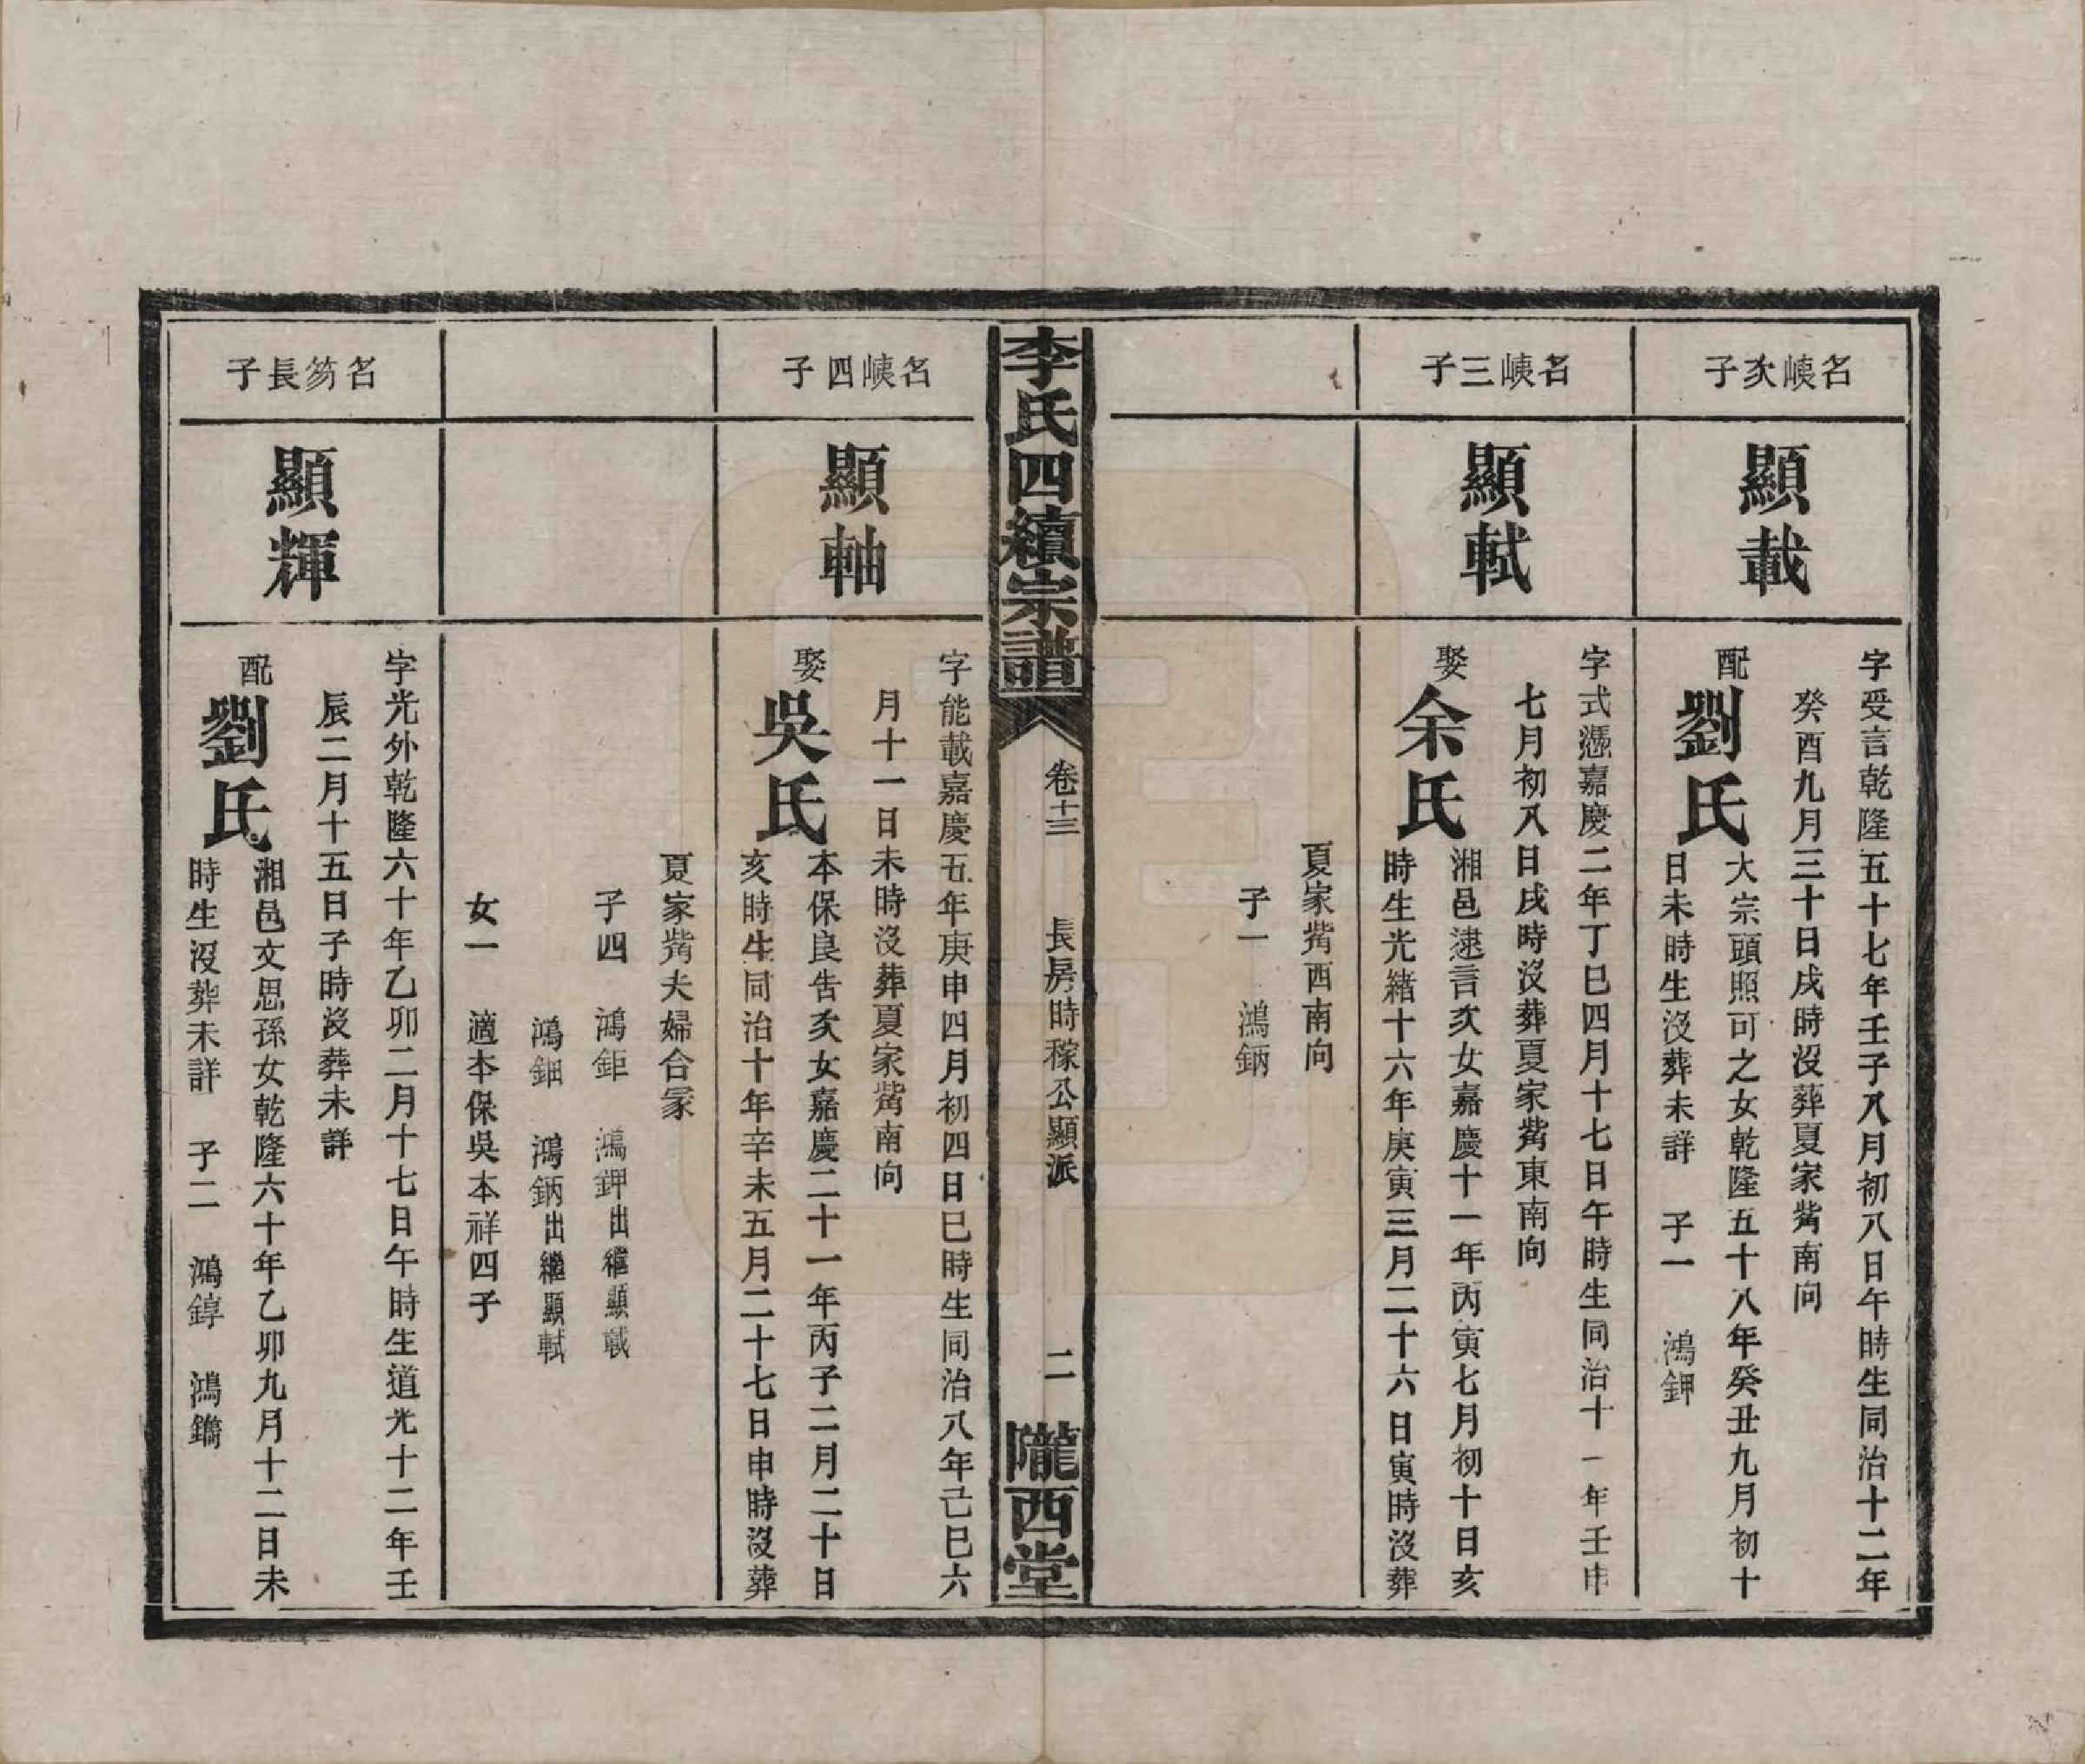 名峓次子
顯載
字受言乾隆五十七年壬子八月初八日午時生同治十二年
癸酉九月三十日戌時沒葬夏家觜南向
配
劉氏
大宗頭照可之女乾隆五十八年癸丑九月初十
日未時生沒葬未詳　子一　鴻鉀
名峓三子
顯軾
字式憑嘉慶二年丁巳四月十七日午時生同治十一年壬申
七月初八日戌時沒葬夏家觜東南向
娶
余氏
湘邑逮言次女嘉慶十一年丙寅七月初十日亥
時生光緒十六年庚寅三月二十六日寅時沒葬
夏家觜西南向
子一　鴻鈵
李氏四續宗譜
卷十三
長房時稼公顯派
二
隴西堂
名峓四子
顯軸
字能載嘉慶五年庚申四月初四日巳時生同治八年己巳六
月十一日未時沒葬夏家觜南向
娶
吳氏
本保良吿次女嘉慶二十一年丙子二月二十日
亥時生同治十年辛未五月二十七日申時沒葬
夏家觜夫婦合冢
子四　鴻鉅　鴻鉀出繼顯載
鴻鈿　鴻鈵出繼顯軾
女一　適本保吳本祥四子
名笏長子
顯輝
字光外乾隆六十年乙卯二月十七日午時生道光十二年壬
辰二月十五日子時沒葬未詳
配
劉氏
湘邑文思孫女乾隆六十年乙卯九月十二日未
時生沒葬未詳　子二　鴻錞　鴻鐫